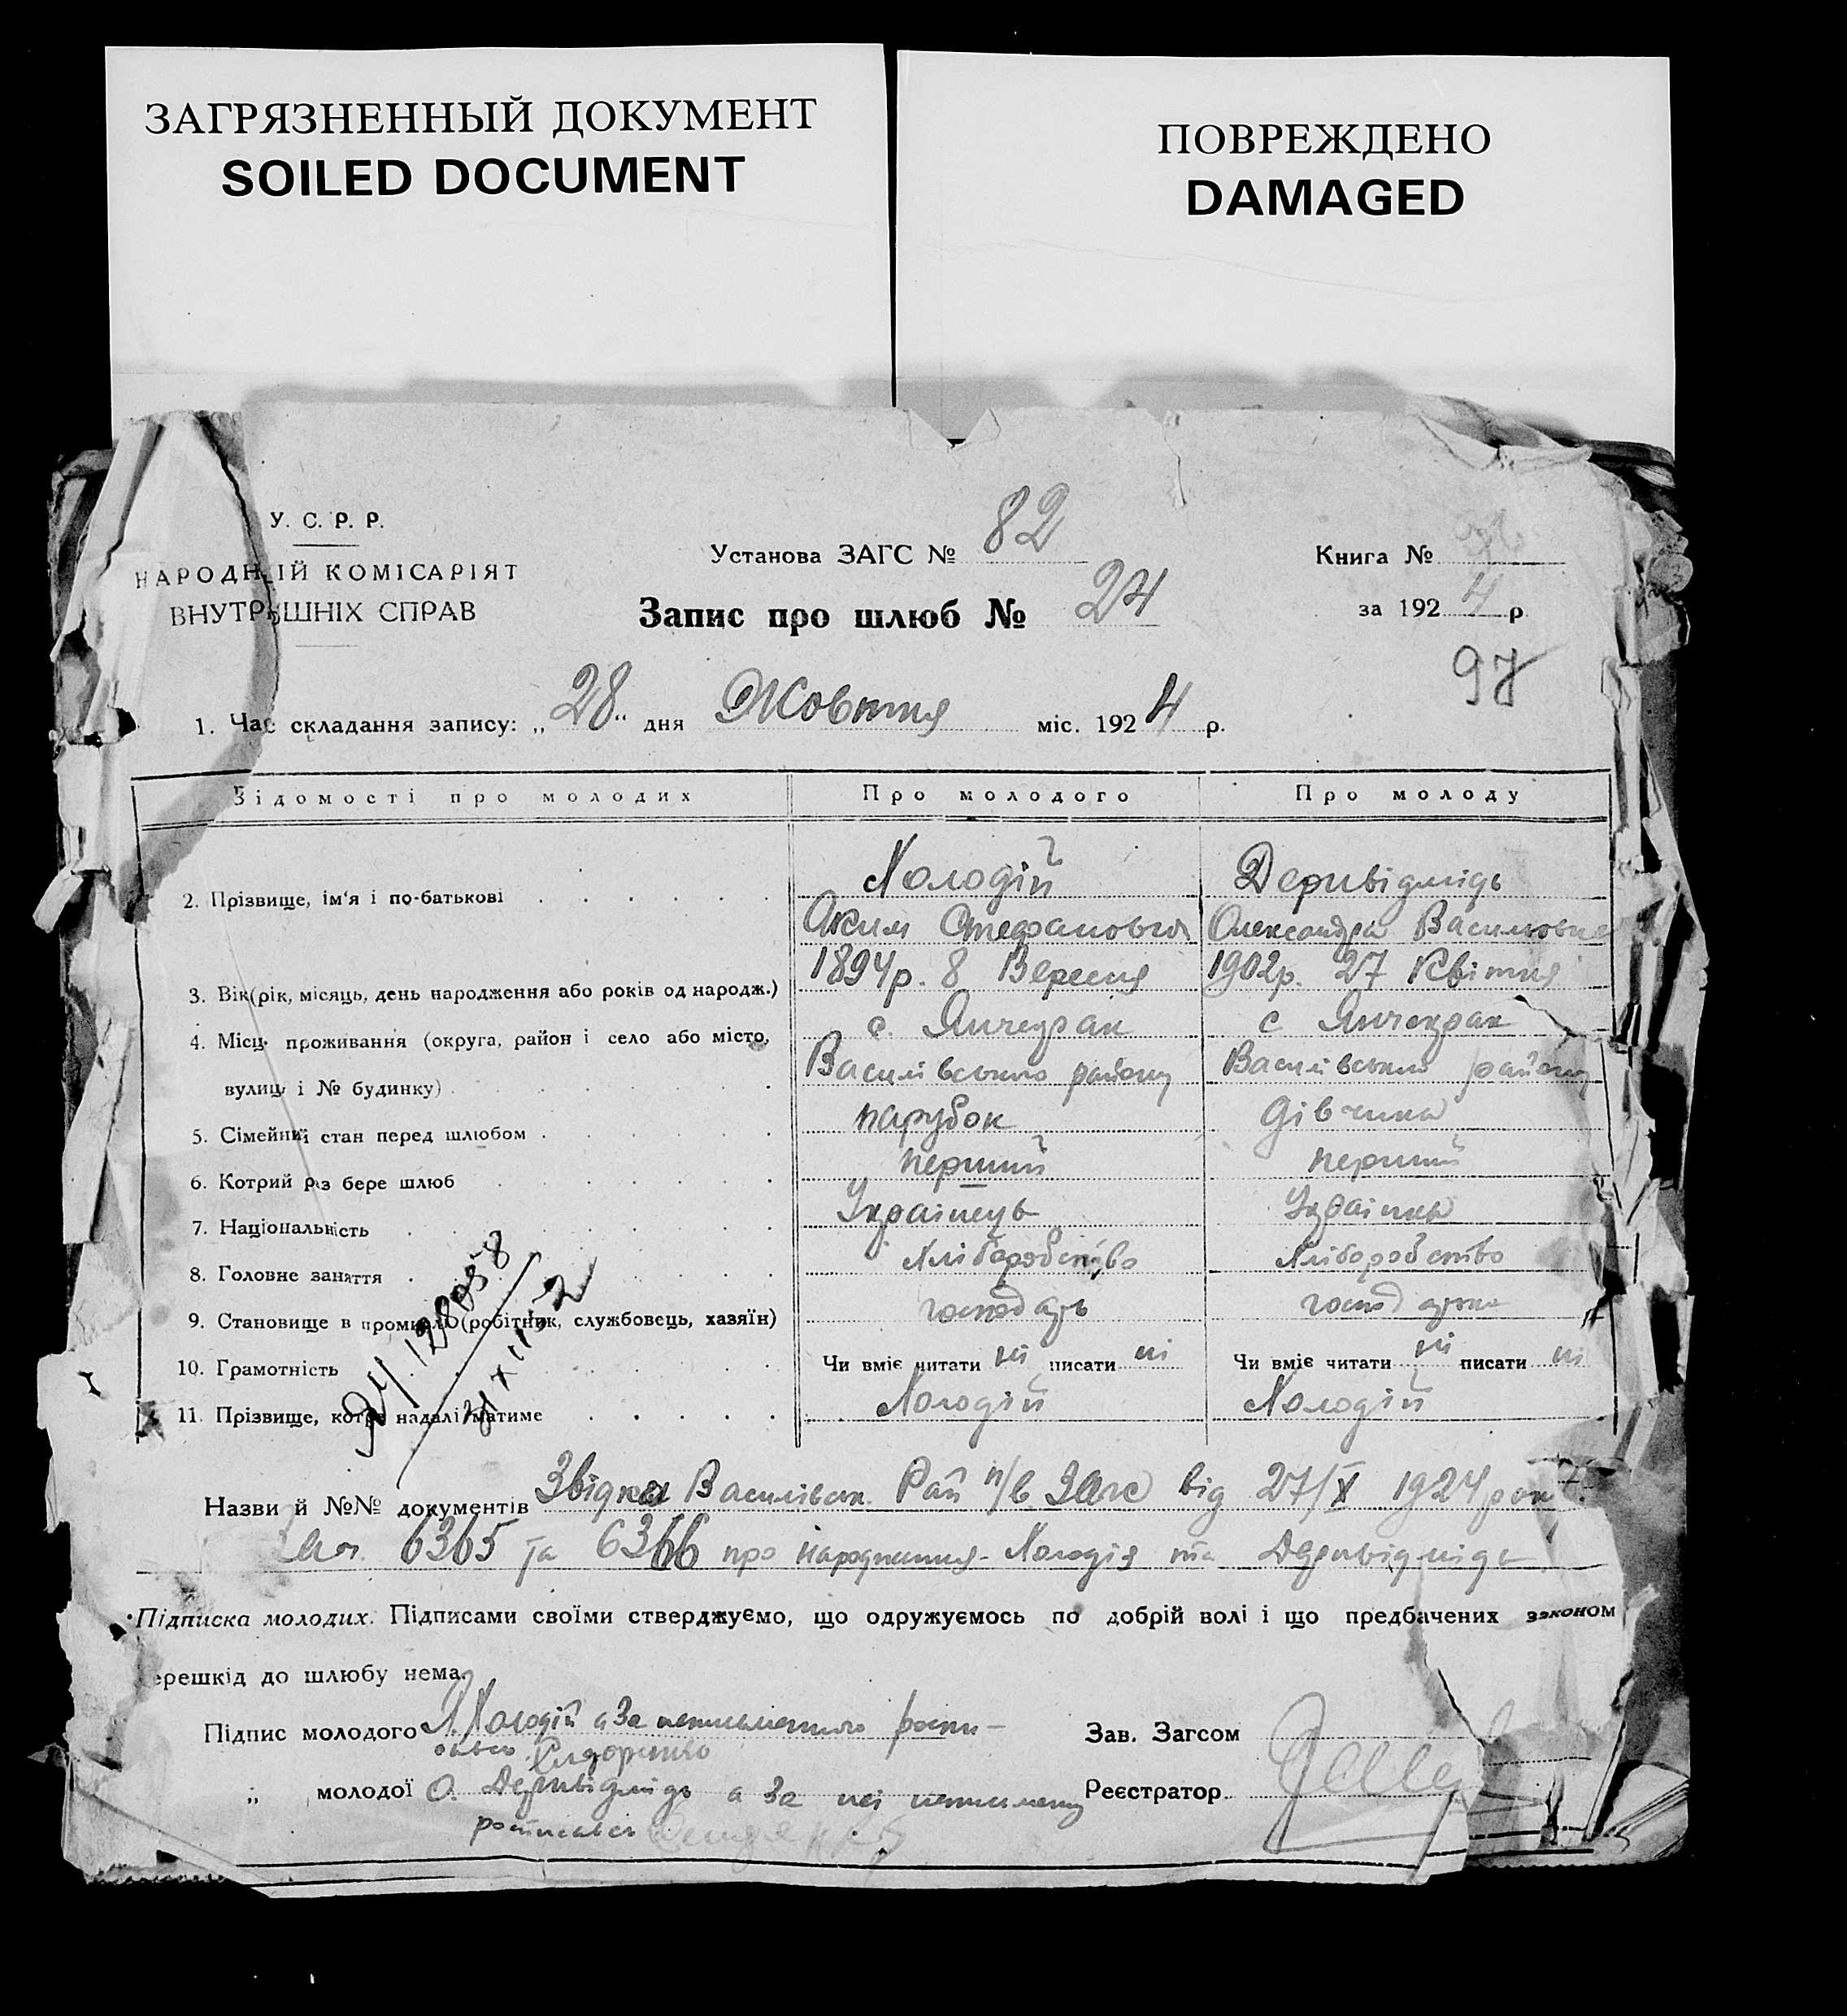 ЗАГРЯЗНЕННЫЙ ДОКУМЕНТ
SOILED DOCUMENT
ПОВРЕЖДЕНО
DAMAGED
У. С. Р. Р.
НАРОДНІЙ КОМІСАРІЯТ
ВНУТРІШНІХ СПРАВ
Установа ЗАГС № 82
Книга №
Запис про шлюб № 24
за 1924 р
97
1. Час складання запису: „28“ дня Жовтня міс. 1924 р.
Відомості про молодих Про молодого Про молоду
2. Прізвище, ім'я і по-батькові Холодій Деривідмідь
Яким Стефанович Олександра Василовна
3. Вік (рік, місяць, день народження або років од народж.) 1894р. 8 Вересня 1902р. 27 Квітня
4. Місц. проживання (округа, район і село або місто, с. Янчекрак с Янчекрак
вулиця і № будинку) Василівського району Василівського району
5. Сімейний стан перед шлюбом парубок дівчина
6. Котрий раз бере шлюб перший перший
7. Національність Українець Українка
8. Головне заняття Хліборобство Хліборобство
9. Становище в промислі (робітник, службовець, хазяїн) господарь господарка
10. Грамотність Чи вміє читати ні писати ні Чи вміє читати ні писати ні
11. Прізвище, котре надалі матиме Холодій Холодій
Назви й №№ документів Звідки Василівськ. Рай п/в Загс від 27/X 1924 рок
6365 та 6366 про народження Холодія та Деривідмідь
Підписка молодих. Підписами своїми стверджуємо, що одружуємось по добрій волі і що предбачених законом
ерешкід до шлюбу нема.
Підпис молодого Холодій а за неписьменного роспи-
сався Сидоренко
Зав. Загсом
„ молодої О. Деривідмідь а за неї неписьмену
Реєстратор
росписався